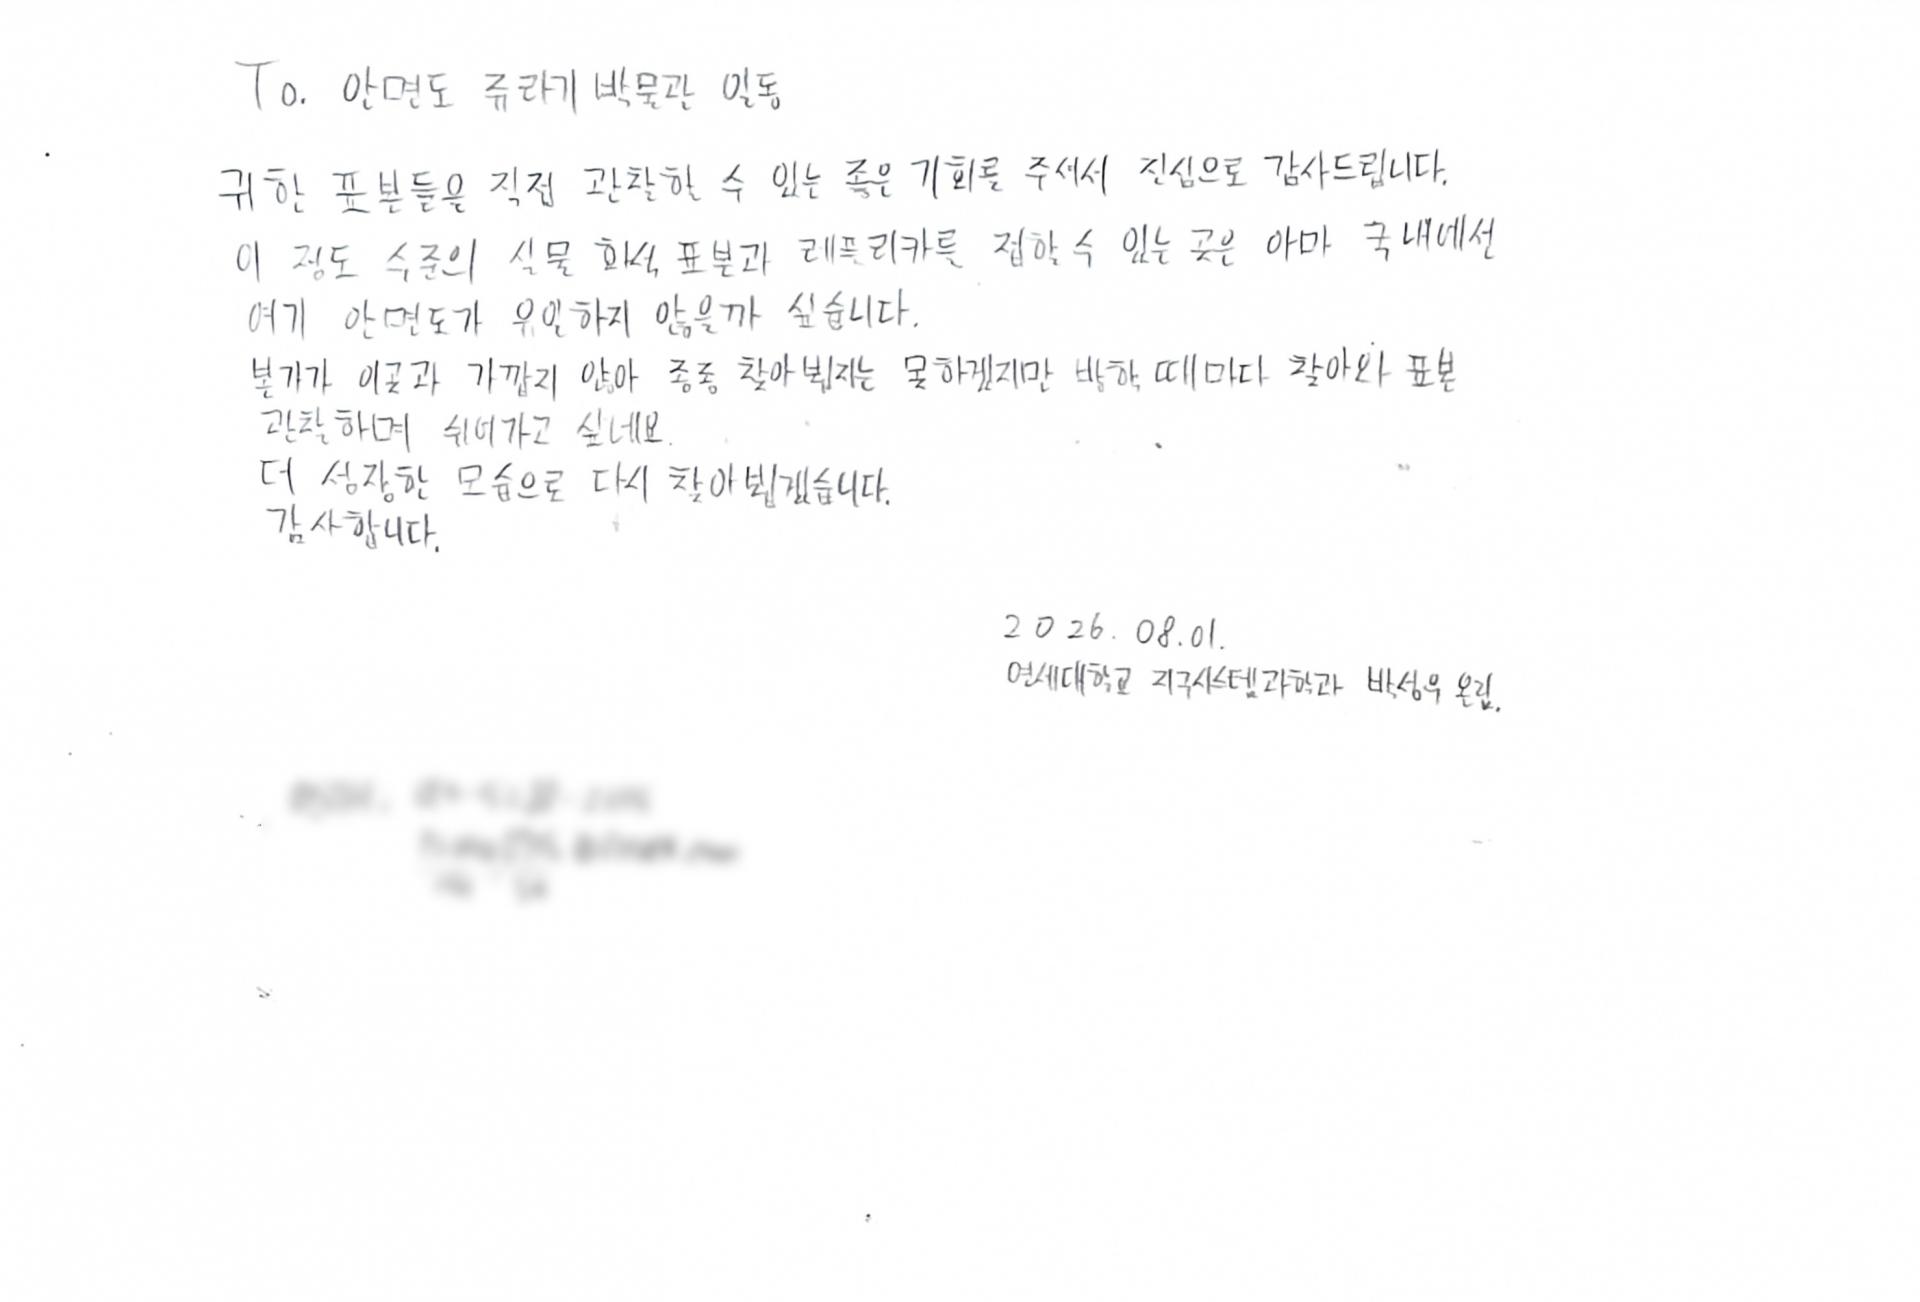 To. 안면도 쥬라기 박물관 일동
귀한 표본들을 직접 관찰할 수 있는 좋은 기회를 주셔서 진심으로 감사드립니다.
이 정도 수준의 실물 화석 표본과 레프리카를 접할 수 있는 곳은 아마 국내에선
여기 안면도가 유일하지 않을까 싶습니다.
본가가 이곳과 가깝지 않아 종종 찾아뵙지는 못하겠지만 방학 때마다 찾아와 표본
관찰하며 쉬어가고 싶네요.
더 성장한 모습으로 다시 찾아뵙겠습니다.
감사합니다.
2026. 08.01.
연세대학교 지구시스템과학과 박성우 올림.